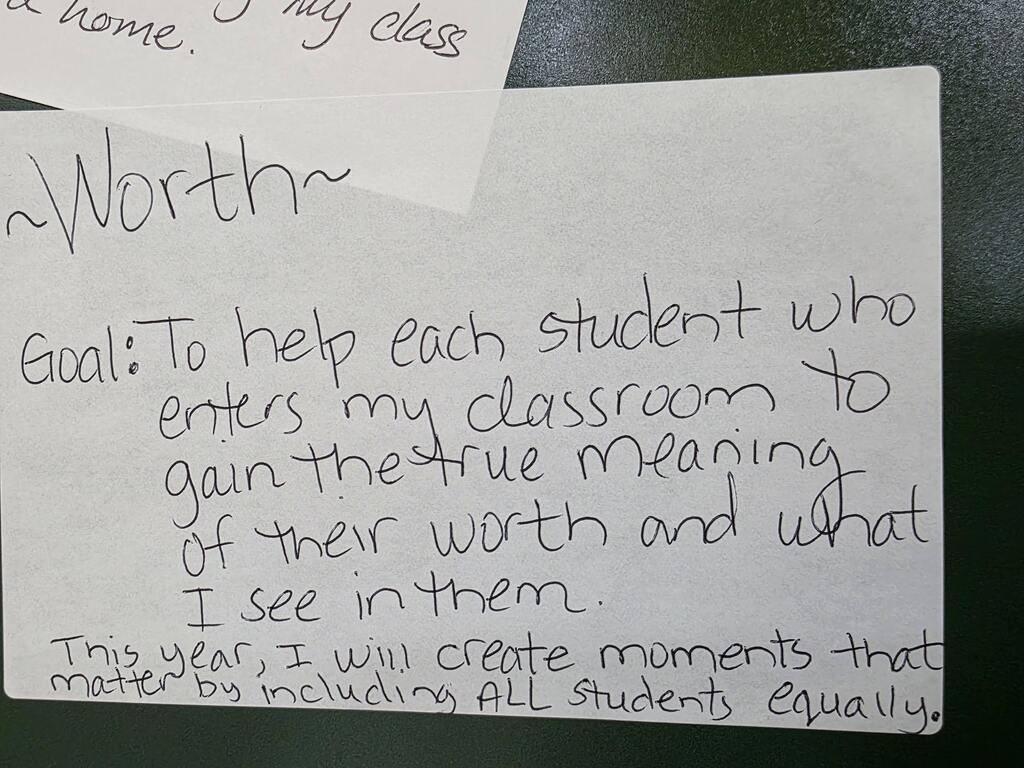 home.
my class
~Worth~
Goal: To help each student who
enters my classroom to
gain the true meaning
of their worth and what
I see in them.
This year, I will create moments that
matter by including ALL students equally.